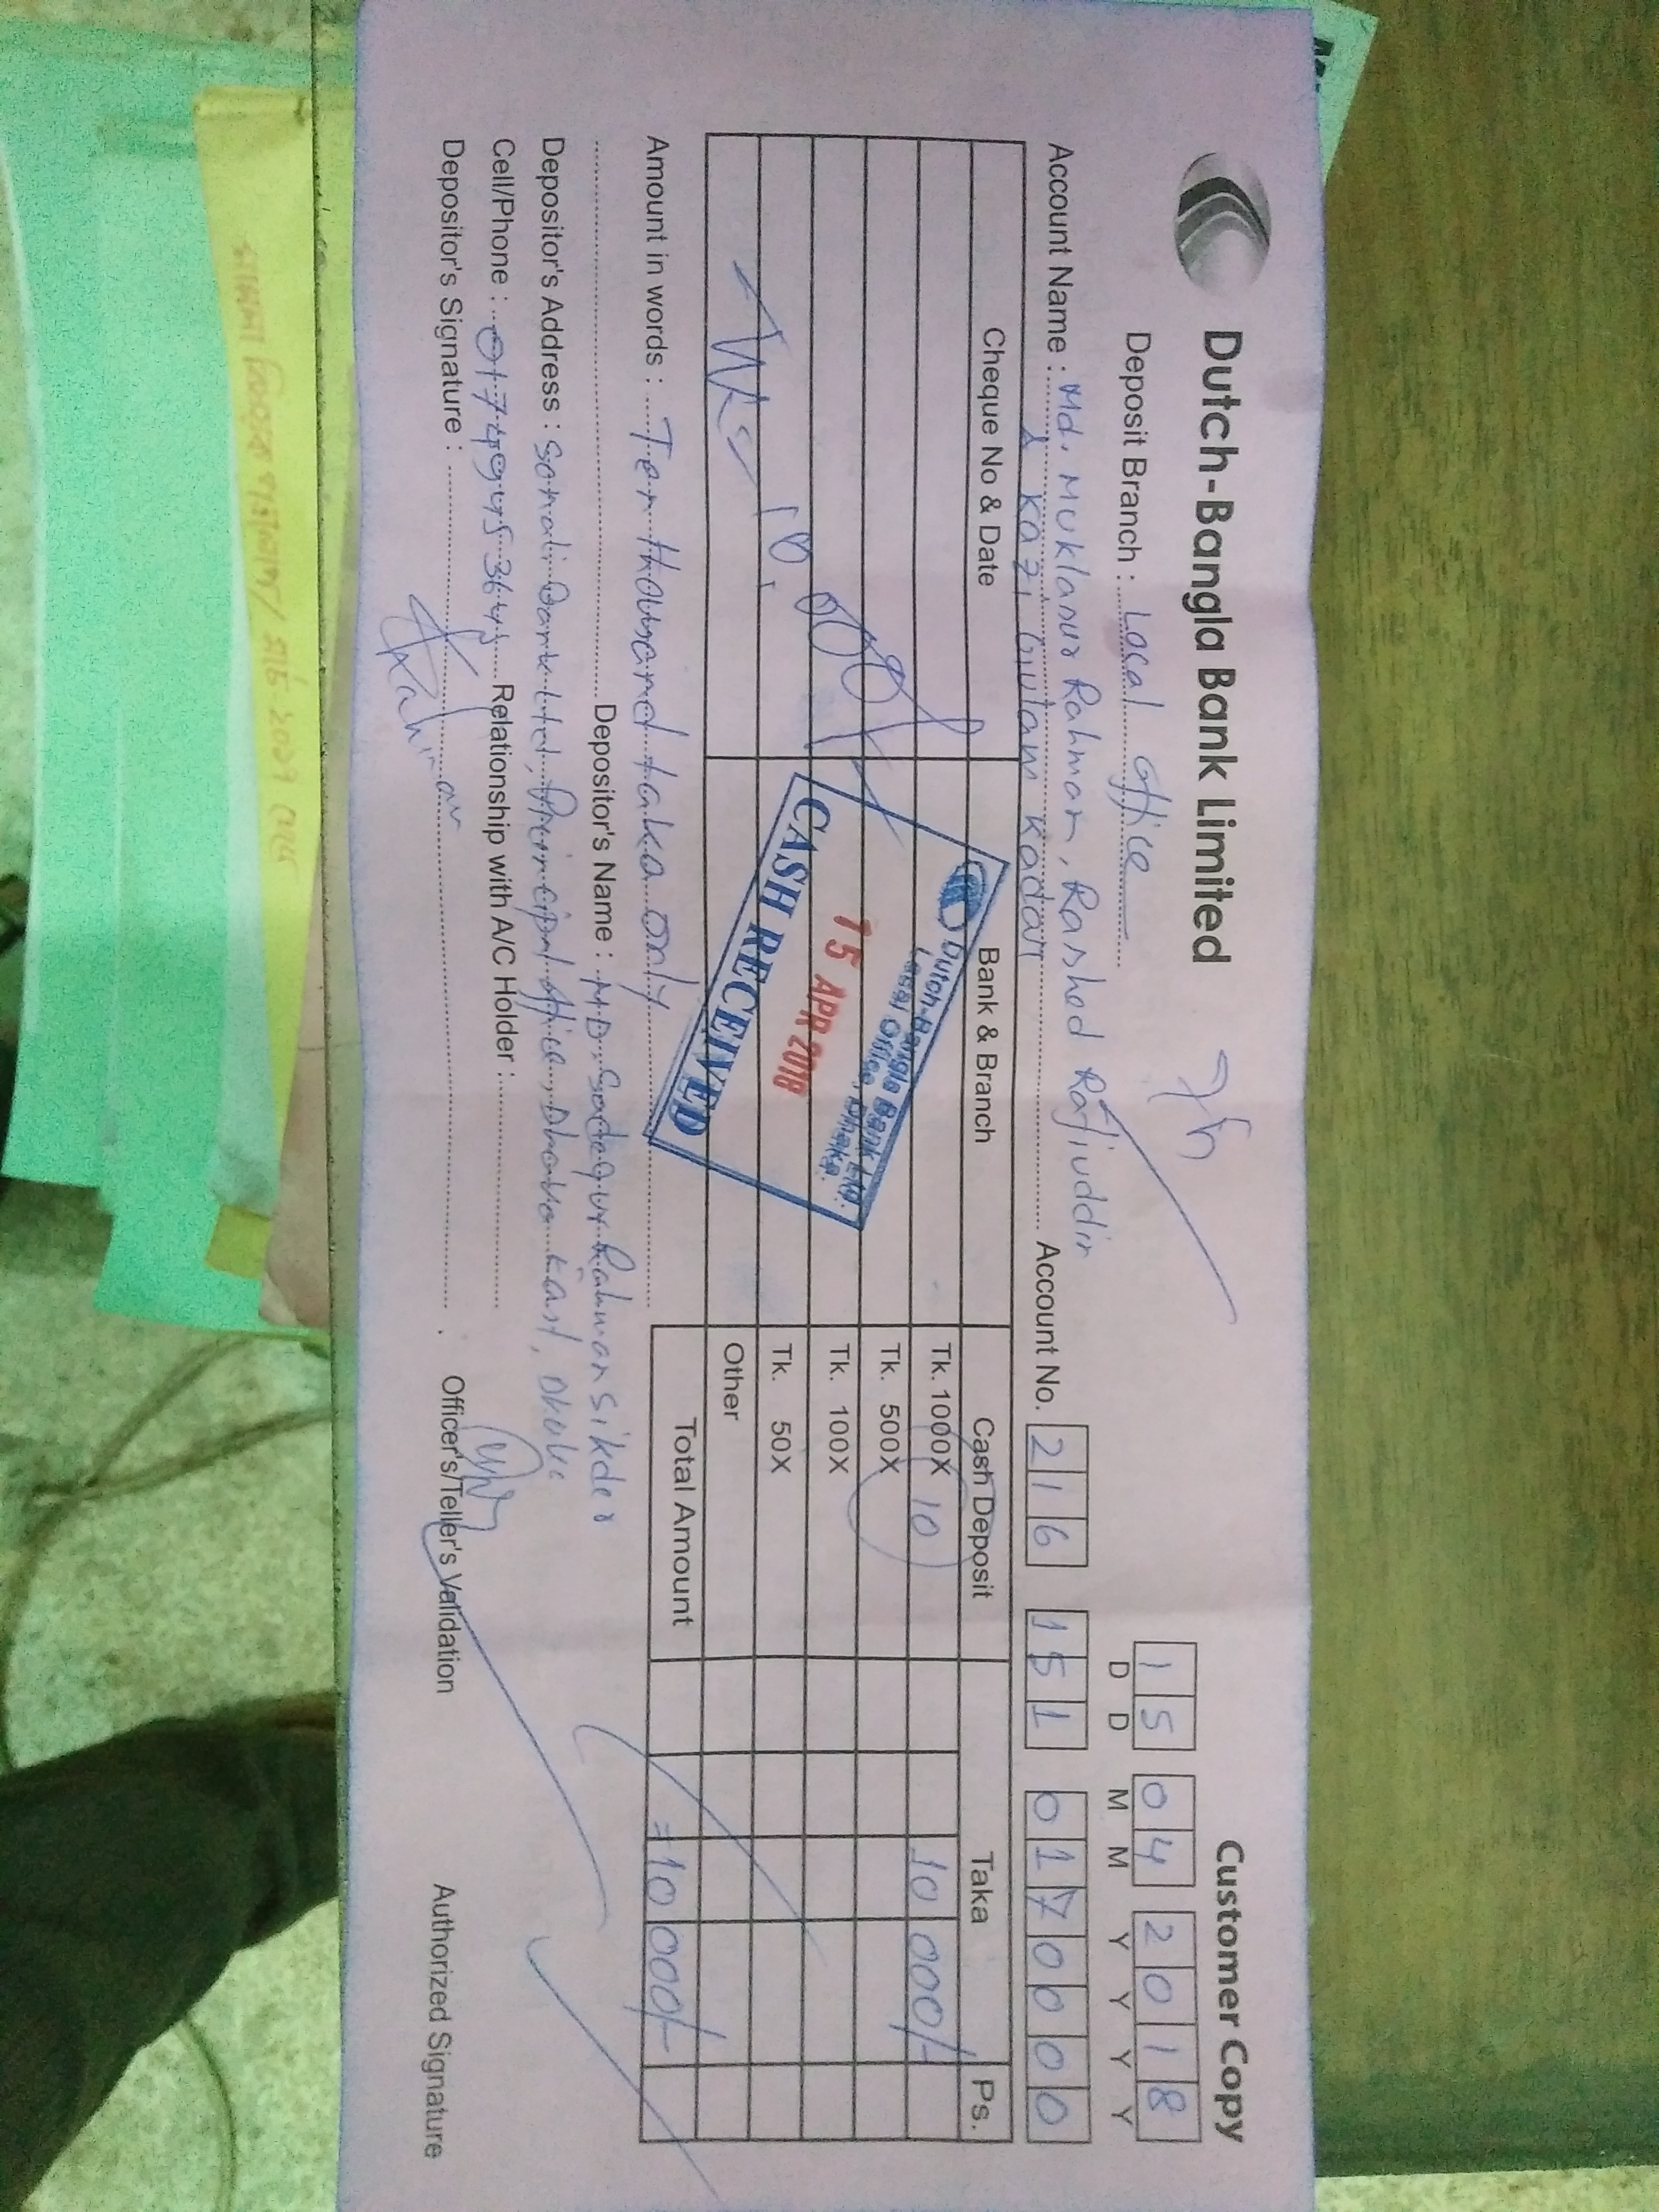 Dutch-Bangla Bank Limited
Customer Copy
Deposit Branch : Local office
15 04 2018
D D M M Y Y Y Y
Account Name : Md. Muklasur Rahman, Rashed Rafiuddin
& Kazi Gulam Kadar
Account No. 216 151 0170000
Cheque No & Date Bank & Branch Cash Deposit Taka Ps.
Tk. 1000X 10 10 000/-
Tk. 500X
Tk. 100X
Tk. 50X
Other
Total Amount =10 000/-
Dutch-Bangla Bank Ltd.
Local Office, Dhaka.
15 APR 2018
CASH RECEIVED
Amount in words : Ten thousand taka only
Depositor's Name : MD. Sadequr Rahman Sikder
Depositor's Address : Sonali Bank Ltd, Principal office, Dhaka East,
Cell/Phone : 01749453645 Relationship with A/C Holder :
Depositor's Signature :
Officer's/Teller's Validation
Authorized Signature